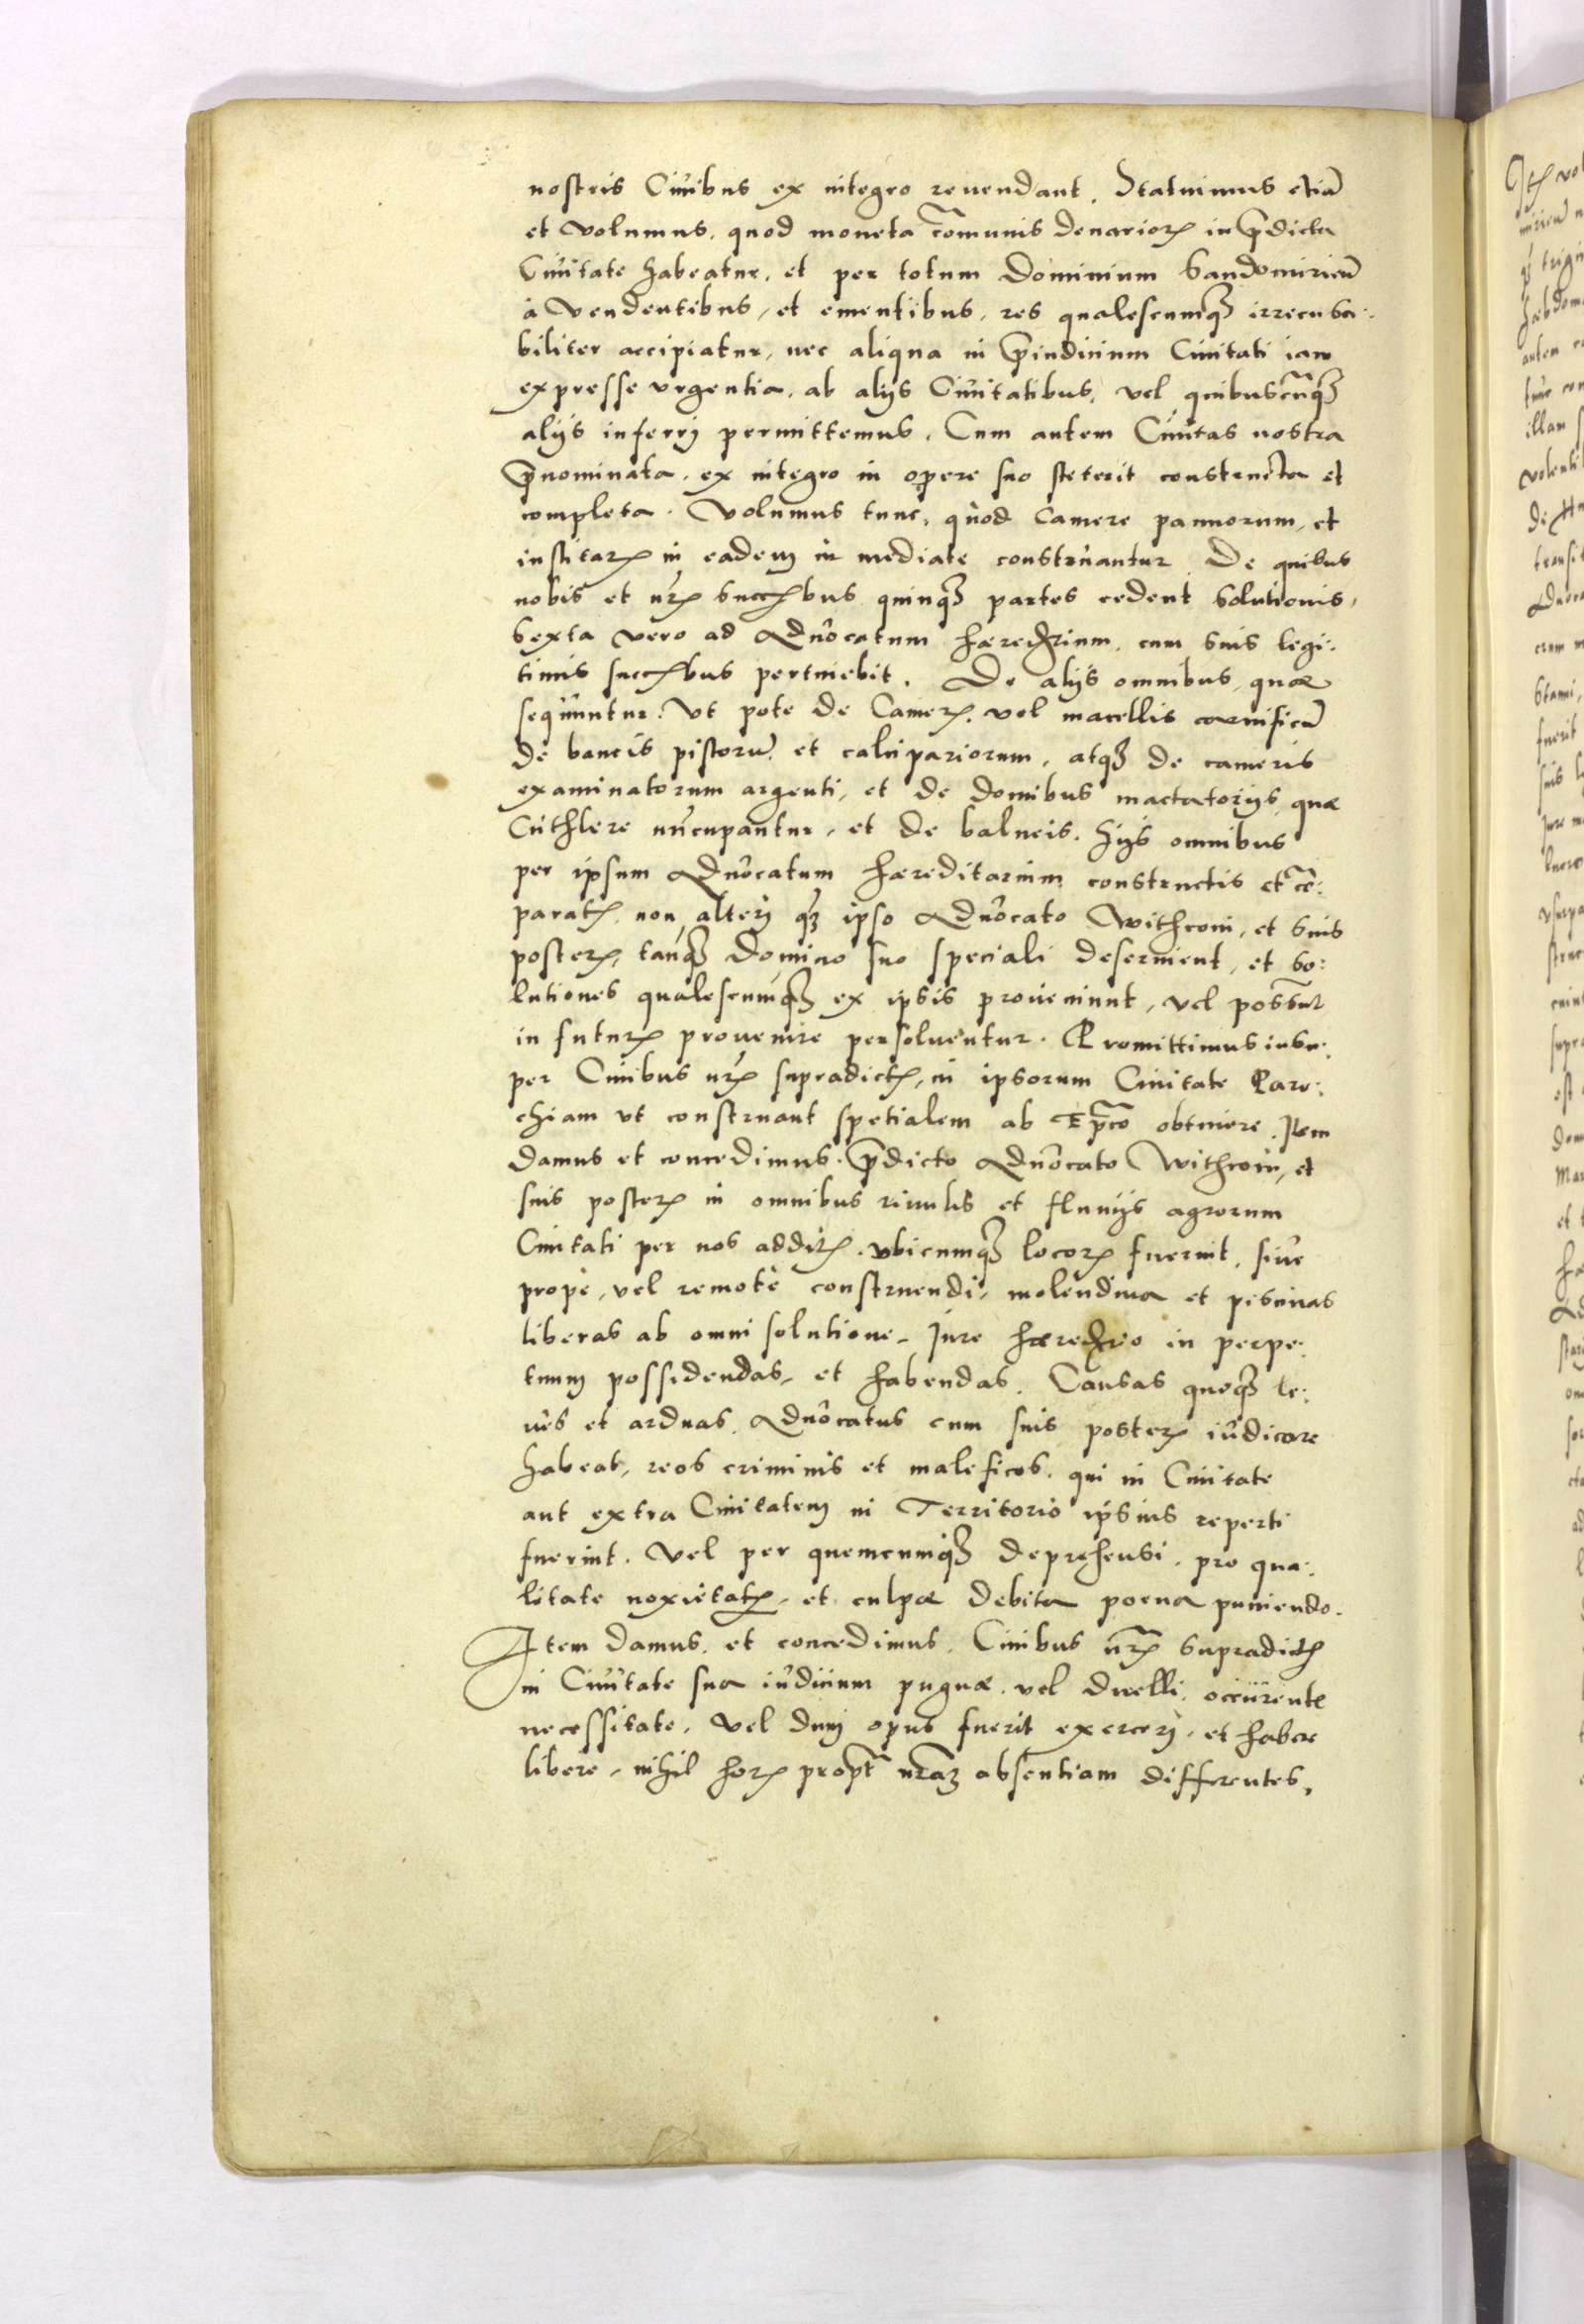 nostris Ciuibus ex integro reuendant. Statuimus etiā
et volumus, quod moneta cōmunis denarioꝝ in p̄dicta
Ciuitate habeatur, et per totum Dominium Sandomirieñ
à vendentibus, et ementibus, res qualescumqꝫ irrecusa:
biliter accipiatur, nec aliqua in p̄iudicium Ciuitati iam
expresse vrgentia, ab alijs Ciuitatibus, vel quibuscūqꝫ
alijs inferrj permittemus. Cum autem Ciuitas nostra
p̄nominata, ex integro in opere suo steterit constructa et
completa. Volumus tunc, quod Camere pannorum, et
institaꝝ in eadem in mediate construantur. De quibus
nobis et nr̄ꝝ succꝝbus quinqꝫ partes cedent solutionis,
sexta vero ad Aduocatum hæredrium, cum suis legi:
timis succꝝbus pertinebit. De alijs omnibus, quæ
sequuntur. Vt pote de Cameꝝ, vel macellis carnificū
de bancis pistorū, et calcipariorum, atqꝫ de cameris
examinatorum argenti, et de domibus mactatorijs, quæ
Cuthlere nūcupantur, et de balneis. hijs omnibus
per ipsum Aduocatum hæreditarium constructis et cō:
paratꝝ, non alterj qꝫ ipso Aduocato Withconi, et suis
posteꝝ, tanqꝫ Domino suo speciali deseruient, et so:
lutiones qualescumqꝫ ex ipsis proueniunt, vel possunt
in futuꝝ prouenire persoluentur. Promittimus insu:
per Ciuibus nr̄ꝝ supradictꝝ, in ipsorum Ciuitate Paro:
chiam vt construant spetialem ab Ep̄co obtinere. Item
damus et concedimus. p̄dicto Aduocato Withconi, et
suis posteꝝ in omnibus riuulis et fluuijs agrorum
Ciuitati per nos additꝝ. vbicumqꝫ locoꝝ fuerint, siue
propè, vel remotè construendi, molendina et piscinas
liberas ab omni solutione, Jure hæredrio in perpe:
tuum possidendas, et habendas. Causas quoqꝫ le:
ues et arduas, Aduocatus cum suis posteꝝ iudicare
habeat, reos criminis et maleficos, qui in Ciuitate
aut extra Ciuitatem in Territorio ipsius reperti
fuerint. Vel per quemcumqꝫ deprehensi, pro qua:
litate noxietatꝝ, et culpæ debita poena puniendo.
Item damus, et concedimus. Ciuibus nr̄ꝝ supradictꝝ
in Ciuitate sua iudicium pugnæ, vel duelli, occurente
necessitate, vel dum opus fuerit exercerj, et habere
libere, nihil hoꝝ propt̄ nr̄aꝫ absentiam differentes,